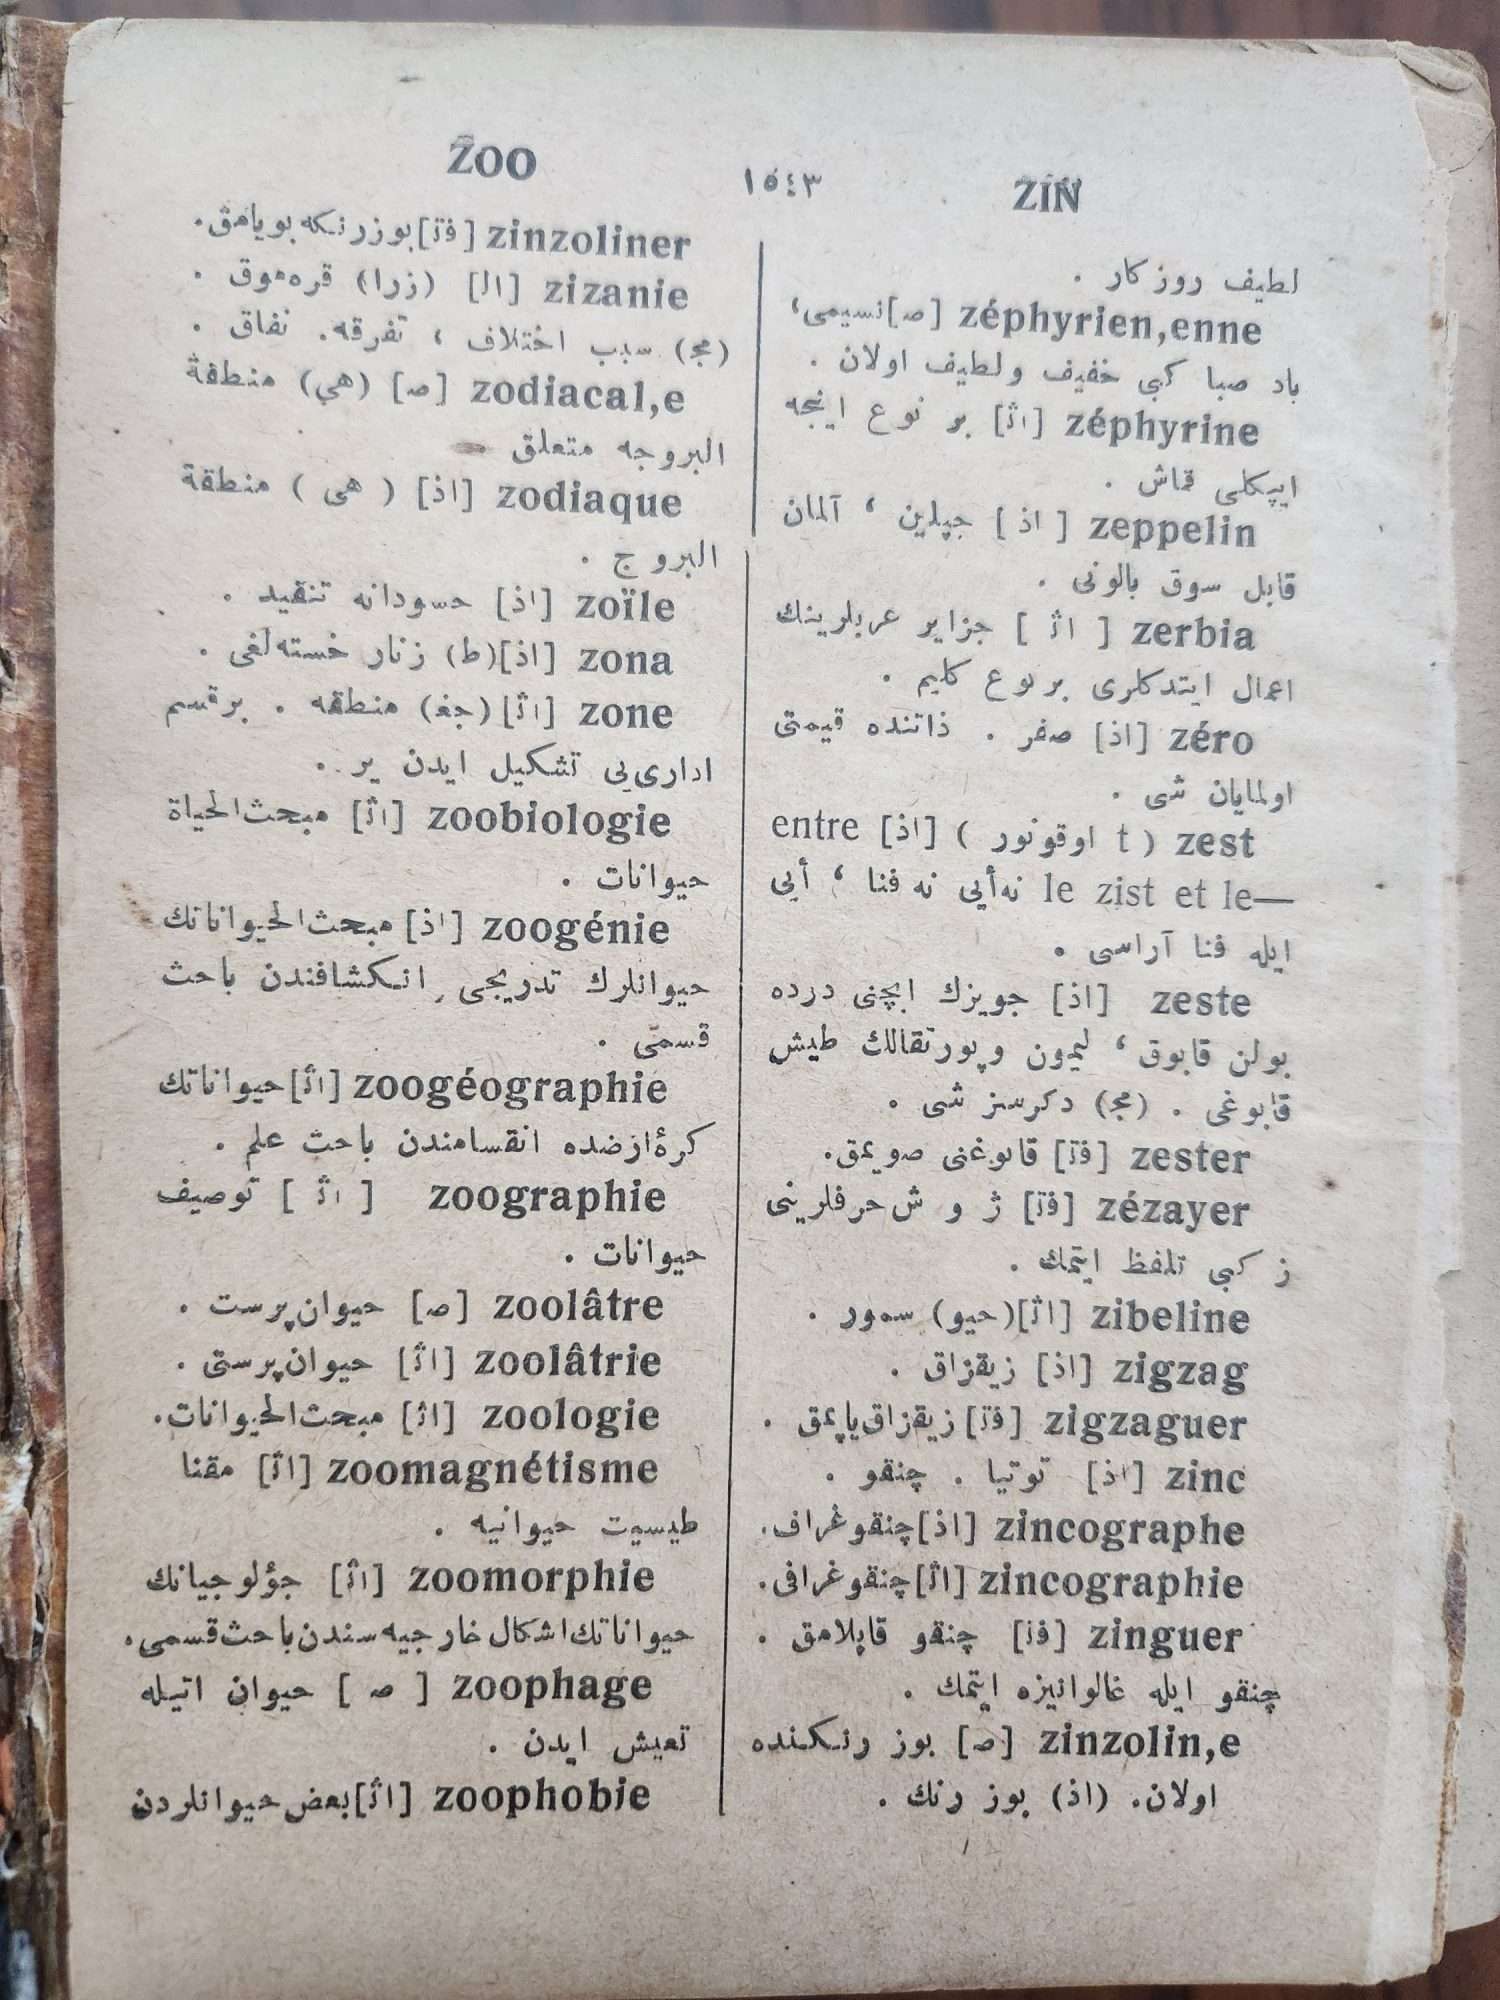 ZOO
١٥٤٣
ZIN
لطيف روزكار .
zéphyrien,enne [ص] نسيمى،
باد صبا كبى خفيف ولطيف اولان .
zéphyrine [اث] بر نوع اينجه
ايپكلى قماش .
zeppelin [اذ] جپلين ، آلمان
قابل سوق بالونى .
zerbia [اث] جزاير عربلرينك
اعمال ايتدكلرى برنوع كليم .
zéro [اذ] صفر . ذاتنده قيمتى
اولمايان شى .
zest (t اوقونور) [اذ] entre
le zist et le— نه‌أيى نه فنا ، أيى
ايله فنا آراسى .
zeste [اذ] جويزك ايچنى درده
بولن قابوق ، ليمون وپورتقالك طيش
قابوغى . (مج) دكرسز شى .
zester [فة] قابوغنى صويمق.
zézayer [فة] ژ و ش حرفلرينى
ز كبى تلفظ ايتمك .
zibeline [اث] (حيو) سمور .
zigzag [اذ] زيقزاق .
zigzaguer [فة] زيقزاق‌ياپمق .
zinc [اذ] توتيا . چنقو .
zincographe [اذ] چنقوغراف.
zincographie [اث] چنقوغرافى.
zinguer [فة] چنقو قاپلامق .
چنقو ايله غالوانيزه ايتمك .
zinzolin,e [ص] بوز رنكنده
اولان. (اذ) بوز رنك .
zinzoliner [فة] بوزرنكه بويامق.
zizanie [اث] (زرا) قره‌موق .
(مج) سبب اختلاف ، تفرقه. نفاق .
zodiacal,e [ص] (هى) منطقة
البروجه متعلق
zodiaque [اذ] (هى) منطقة
البروج .
zoïle [اذ] حسودانه تنقيد .
zona [اذ] (ط) زنار خسته‌لغى .
zone [اث] (جغ) منطقه . برقسم
ادارى‌يى تشكيل ايدن ير .
zoobiologie [اث] مبحث‌الحياة
حيوانات .
zoogénie [اذ] مبحث‌الحيواناتك
حيوانلرك تدريجى انكشافندن باحث
قسمى .
zoogéographie [اث] حيواناتك
كرۀارضده انقسامندن باحث علم .
zoographie [اث] توصيف
حيوانات .
zoolâtre [ص] حيوان‌پرست .
zoolâtrie [اث] حيوان‌پرستى .
zoologie [اث] مبحث‌الحيوانات.
zoomagnétisme [اث] مقنا
طيسيت حيوانيه .
zoomorphie [اث] جؤلوجيانك
حيواناتك‌اشكال خارجيه‌سندن‌باحث‌قسمى.
zoophage [ص] حيوان اتيله
تعيش ايدن .
zoophobie [اث] بعض حيوانلردن